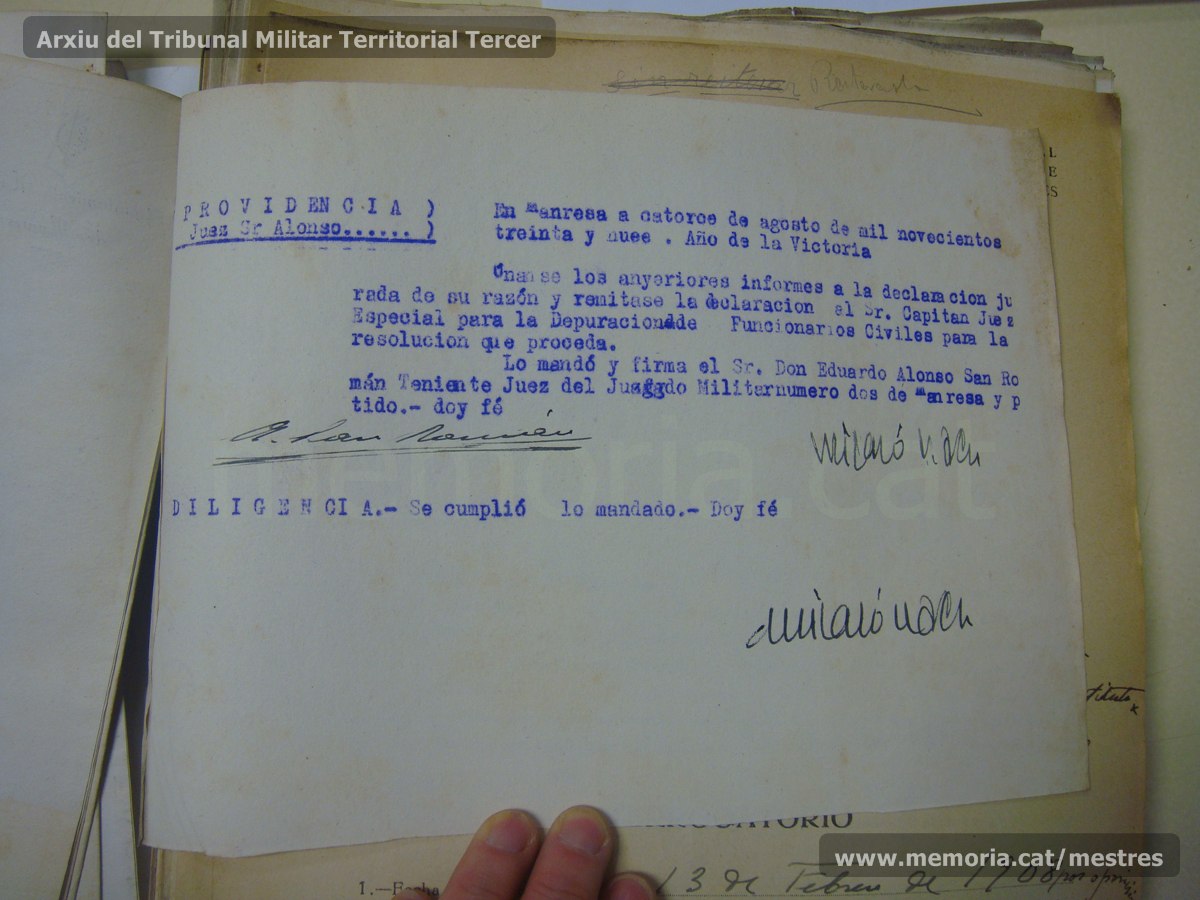 Arxiu del Tribunal Militar Territorial Tercer
P R O V I D E N C I A )
Juez Sr Alonso...... )
En Manresa a catorce de agosto de mil novecientos
treinta y nuee . Año de la Victoria
Únanse los anyeriores informes a la declaracion ju
rada de su razón y remitase la declaracion al Sr. Capitan Juez
Especial para la Depuracionde Funcionarios Civiles para la
resolucion que proceda.
Lo mandó y firma el Sr. Don Eduardo Alonso San Ro
mán Teniente Juez del Juzgado Militarnumero dos de Manresa y p
tido.- doy fé
A. San Román
memoria.cat
D I L I G E N C I A.- Se cumplió lo mandado.- Doy fé
1.—Fecha
13 de Febrero de
www.memoria.cat/mestres